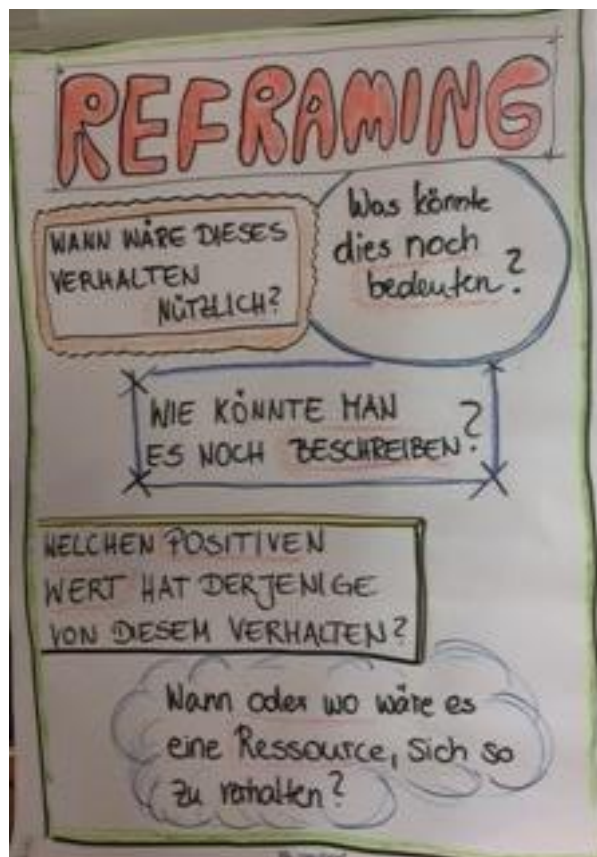 REFRAMING
WANN WÄRE DIESES
VERHALTEN
NÜTZLICH?
Was könnte
dies noch
bedeuten?
WIE KÖNNTE MAN
ES NOCH BESCHREIBEN?
WELCHEN POSITIVEN
WERT HAT DERJENIGE
VON DIESEM VERHALTEN?
Wann oder wo wäre es
eine Ressource, sich so
zu verhalten?